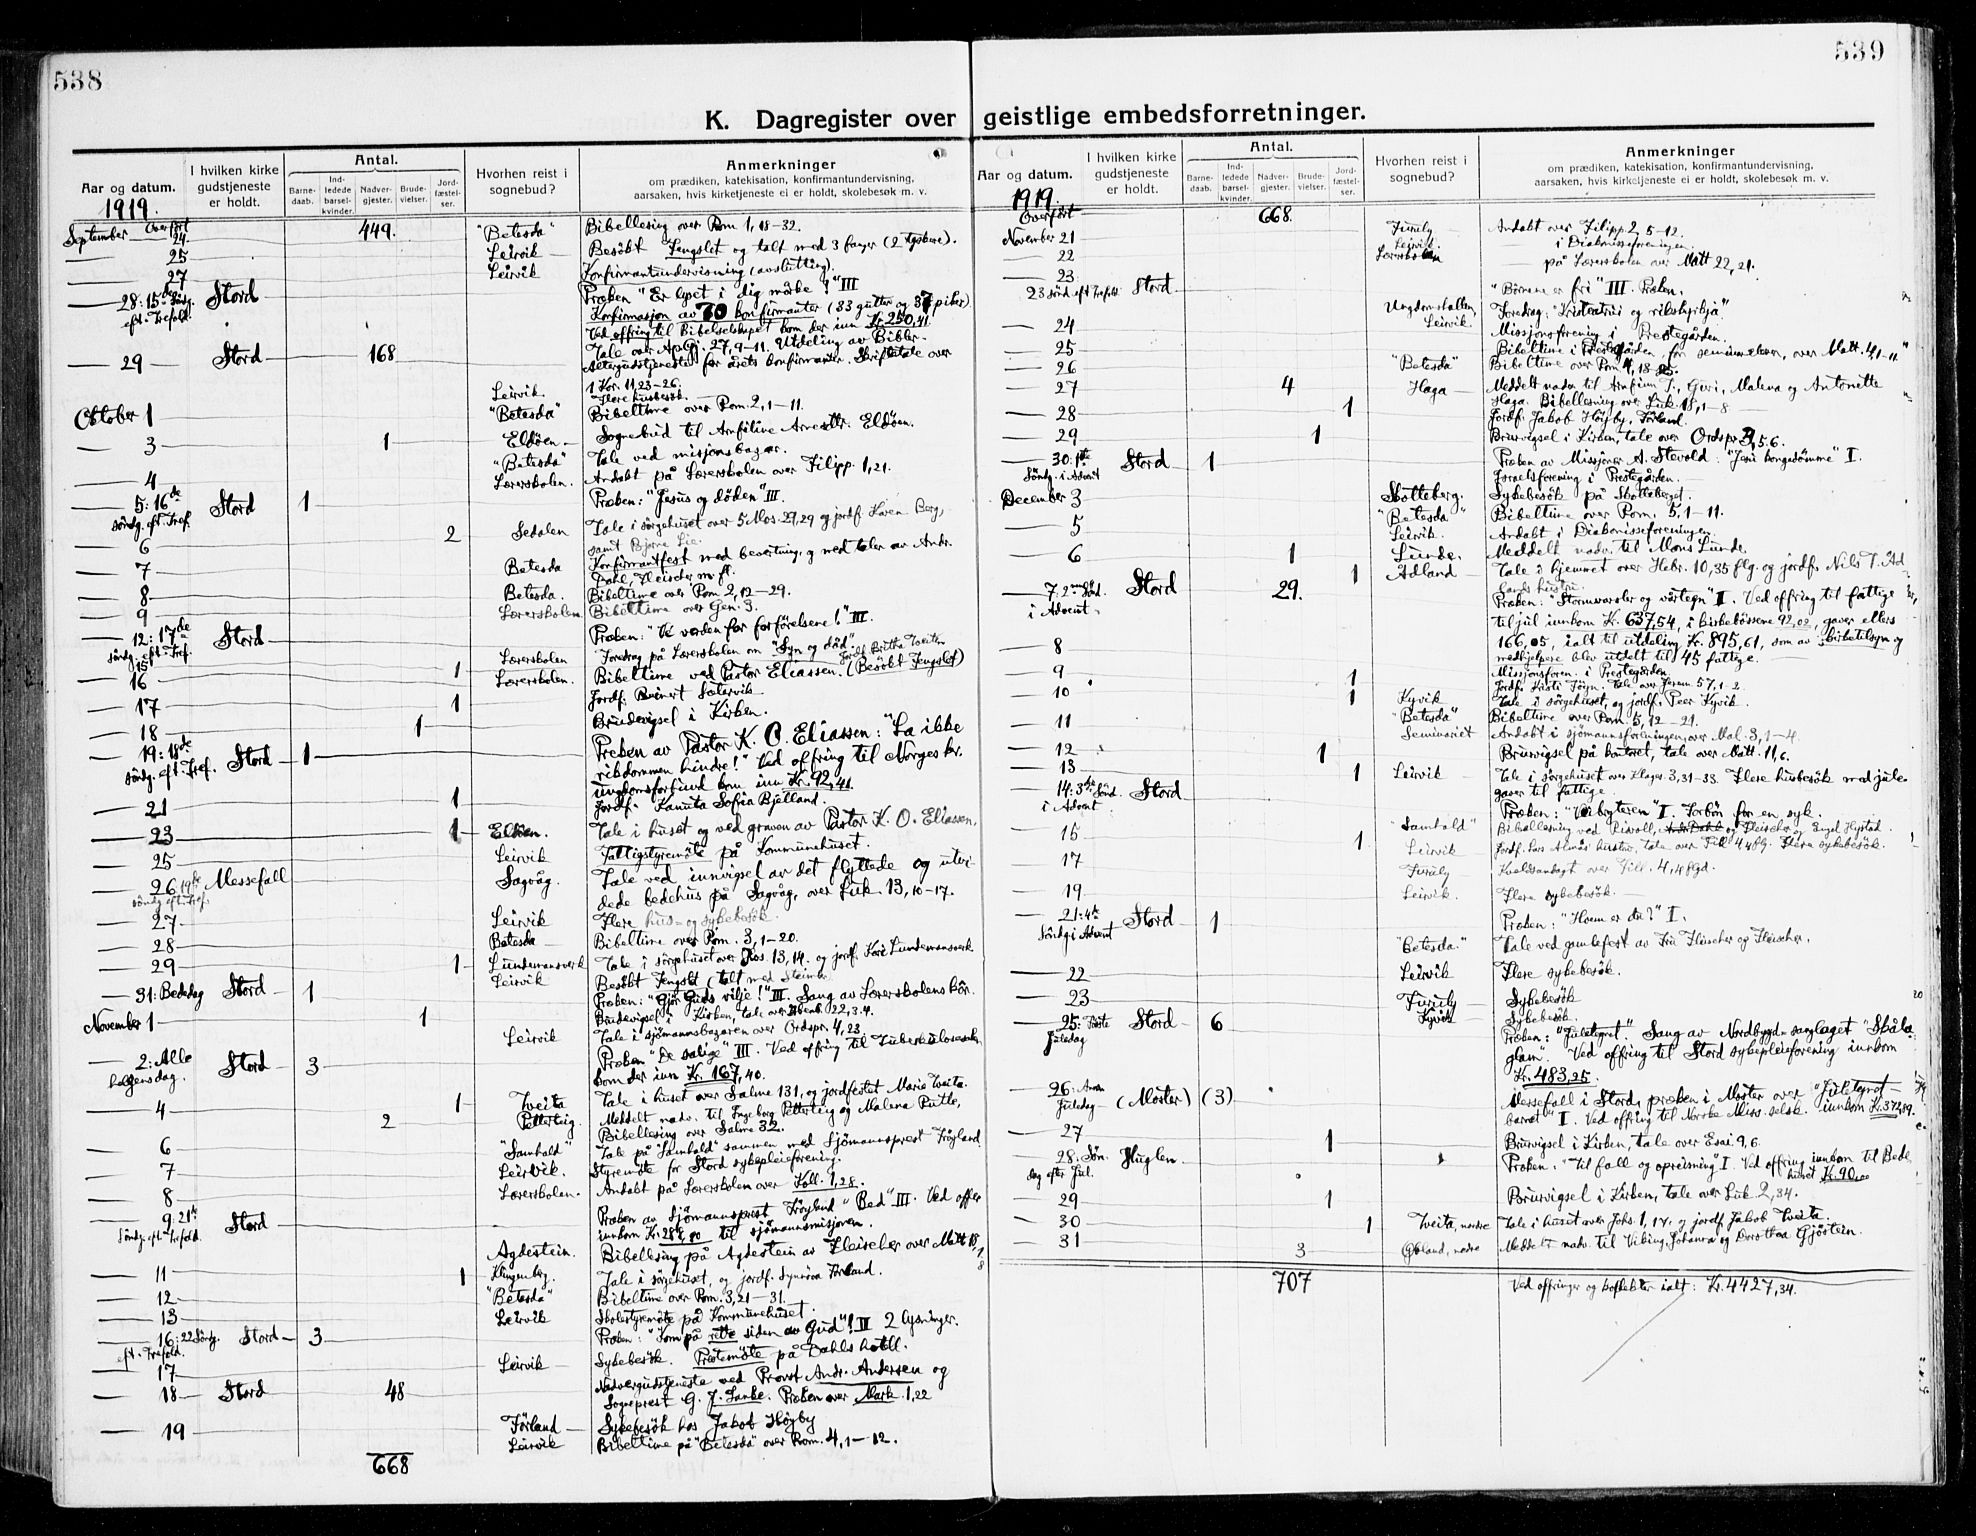 538
K. Dagregister over
Aar og datum.
1919.
I hvilken kirke gudstjeneste er holdt.
Antal.
Barnedaab.
Indledede barselkvinder.
Nadvergjester.
Brudevielser.
Jordfæstelser.
Hvorhen reist i sognebud?
Anmerkninger
om prædiken, katekisation, konfirmantundervisning,
aarsaken, hvis kirketjeneste ei er holdt, skolebesøk m. v.
Overført 449.
September 24 "Betesda" Bibellesing over Rom 1, 18-32.
25 Leirvik Besökt Fengslet og talt med 3 fanger (2 tyskere).
27 Leirvik Konfirmantundervisning (avslutting).
28: 15de Söndg. eft. Trefold. Stord Præken "Er lyset i dig mörke!" III
Konfirmasjon av 70 konfirmanter (33 gutter og 37 piker)
Ved offring til Bibelselskapet kom der inn Kr. 250,41.
Tale over Ap.Gj. 27, 9-11. Utdeling av Bibler.
29 Stord 168 Altergudstjeneste for årets konfirmanter. Skriftetale over
1 Kor. 11, 23-26.
Leirvik Flere husbesök.
Oktober 1 "Betesda" Bibeltime over Rom. 2, 1-11.
3 1 Eldöen Sognebud til Arnfiline Arnesdtr. Eldöen.
"Betesda" Tale ved misjonsbazar.
4 Lærerskolen. Andakt på Lærerskolen over Filipp. 1, 21.
5: 16de söndg. eft. Tref. Stord 1 Præken: "Jesus og döden" III.
6 2 Sedalen Tale i sörgehuset over 5 Mos. 29, 29 og jordf. Karen Berg,
samt Bjarne Lie.
7 Betesda Konfirmantfest med bevertning, og med taler av Andr.
Dahl, Fleischer m. fl.
8 Betesda. Bibeltime over Rom 2, 12-29.
9 Lærerskolen Bibeltime over Gen. 3.
12: 17de söndg. eft. Tref. Stord Præken: "Ve verden for forförelsene!" III.
15 Lærerskolen Foredrag på Lærerskolen om "Syn og dåd". Jordf. Britha Tveiten
16 1 Lærerskolen. Bibeltime ved Pastor Eliassen. (Besökt Fengslet)
17 1 Jordf. Beinert Sætervik
18 1 Brudevigsel i Kirken.
19: 18de söndg. eft. Tref. Stord 1 Preken av Pastor K. O. Eliassen: "La ikke
rikdommen hindre!" Ved offring til Norges kr.
ungdomsforbund kom inn Kr. 92,41.
21 1 Jordf. Kanuta Sofia Bjelland.
23 1 Eldöen. Tale i huset og ved graven av Pastor K. O. Eliassen.
25 Leirvik Fattigstyremöte på Kommunehuset.
26 19de söndg. eft. Tref. Messefall Sagvåg. Tale ved innvigsel av det flyttede og utvi-
dede bedehus på Sagvåg, over Luk. 13, 10-17.
27 Leirvik Flere hus- og sykebesök.
28 Betesda Bibeltime over Rom. 3, 1-20.
29 1 Lundemansverk Tale i sörgehuset over Hos. 13, 14. og jordf. Kari Lundemansverk
Leirvik Besökt Fengslet (talt med
31: Bededag Stord 1 Præken: "Gjör Guds vilje!" III. Sang av Lærerskolens kor.
November 1 1 Brudevigsel i Kirken, tale over Åbenb. 22, 3. 4.
Leirvik Tale i sjömannsbazaren over Ordspr. 4, 23.
2: Alle helgensdag. Stord 3 Præken "De salige" III. Ved offring til Tuberkulosesaken
kom der inn Kr. 167,40.
4 1 Tveita Tale i huset over Salme 131, og jordfestet Marie Tveita.
2 Petterteig. Meddelt nadv. til Ingeborg Petterteig og Malena Rutle,
Bibellesing over Salme 32.
6 "Samhold" Tale på "Samhold" sammen med Sjömannsprest Fröyland
7 Leirvik. Styremöte for Stord sykepleieforening.
8 Lærerskolen. Andakt på Lærerskolen over Koll. 1, 28.
9: 21de Söndg. eft. Trefold. Stord Præken av Sjömannsprest Fröyland "Bed" III. Ved offer
innkom Kr. 288,00 til sjömannsmisjonen.
Agdestein. Bibellesing på Agdestein av Fleischer over Matt 18, 1-8
11 1 Klingenberg. Tale i sörgehuset, og jordf. Synöva Förland.
12 "Betesda" Bibeltime over Rom. 3, 21-31.
13 Leirvik Skolestyremöte på Kommunehuset.
16: 22 Söndg. eft. Trefold. Stord 3 Præken: "Kom på rette siden av Gud"! III 2 lysninger.
17 Leirvik Sykebesök. Prestemöte på Dahls hotell.
18 Stord 48 Nadvergudstjeneste ved Provst Andr. Andersen og
Sogneprest G. J. Lanke. Præken over Mark. 1, 22
19 Förland Sykebesök hos Jakob Högby
Leirvik Bibeltime på "Betesda" over Rom. 4, 1-12.
668
539
geistlige embedsforretninger.
Aar og datum.
1919.
I hvilken kirke gudstjeneste er holdt.
Antal.
Barnedaab.
Indledede barselkvinder.
Nadvergjester.
Brudevielser.
Jordfæstelser.
Hvorhen reist i sognebud?
Anmerkninger
om prædiken, katekisation, konfirmantundervisning,
aarsaken, hvis kirketjeneste ei er holdt, skolebesøk m. v.
Overfört 668.
November 21 Furuly Andakt over Filipp 2, 5-12.
22 Leirvik. i Diakonisseforeningen.
Lærerskolen på Lærerskolen over Matt 22, 21.
23 23 Sönd. eft Trefold. Stord "Börnene er fri" III. Præken.
24 Ungdomshallen, Leirvik Foredrag: "Kristentrui og rikshyrlsja".
Missjonsforening i Prestegården.
25 Bibeltime i Prestegården, for seminarelever, over Matt. 4, 1-11
26 "Betesda" Bibeltime over Rom 4, 18-25.
27 4 Haga Meddelt nadv. til Arnfinn T., Guri, Malena og Antonette
Haga. Bibellesning over Luk. 18, 1-8
28 1 Jordf. Jakob Högby, Förland.
29 1 Bruvigsel i Kirken, tale over Ordspr. 3, 5. 6.
30: 1ste Söndg. i Advent Stord 1 Præken av Missjonær A. Stevold: "Jesu kongedömme" I.
Israelsforening i Prestegården.
December 3 Skotteberg. Sykebesök på Skotteberget.
"Betesda" Bibeltime over Rom. 5, 1-11.
5 Leirvik. Andakt i Diakonisseforeningen.
6 1 Lunde. Meddelt nadv. til Mons Lunde.
1 Adland Tale i hjemmet over Hebr. 10, 35 flg. og jordf. Nils T. Ad-
lands hustru.
7. 2nen Sönd. i Advent Stord 29. Præken: "Stormvarsler og vårtegn" II. Ved offring til fattige
til jul innkom Kr. 637,54, i kirkebössene 92,02, gaver ellers
166,05, ialt til utdeling Kr. 895,61, som av kirketilsyn og
medhjelpere blev utdelt til 45 fattige.
8 Missjonsforen. i Prestegården.
9 1 Jordf. Kristi Töyn. Tale over Jerem. 57, 1-2.
10 1 Kyvik Tale i sörgehuset, og jordf. Peer Kyvik.
"Betesda" Bibeltime over Rom 5, 12-21.
11 Seminariet Andakt i sjömannsforeningen, over Mal. 3, 1-4.
12 1 Bruvigsel på kontoret, tale over Matt. 11, 6.
13 1 Leirvik Tale i sörgehuset over Klages. 3, 31-33. Flere husbesök med jule-
gaver til fattige.
14: 3die Sönd. i Advent Stord Præken: "Veibryteren" I. Forbön for en syk.
15 "Samhold" Bibellesning ved Risvoll, og Fleischer og Engel Hystad.
1 Leirvik Jordf. Lars Almås hustru, tale over Fil 4, 4 flg. Flere sykebesök.
17 Furuly Kveldsandagt over Fill. 4, 4 flgd.
19 Leirvik. Flere sykebesök.
21: 4de Söndg i Advent Stord 1 Præken: "Hvem er du?" I.
"Betesda." Tale ved gamlefest av Fru Fleischer og Fleischer.
22 Leirvik Flere sykebesök.
23 Furuly Sykebesök
Kyvik Sykebesök.
25: Förste Juledag Stord 6 Præken: "Juletegnet". Sang av Nordbygd-sanglaget "Skåla-
glam". Ved offring til Stord sykepleieforening innkom
Kr. 483,25.
26: Annen Juledag (Moster) (3) Messefall i Stord, præken i Moster over "Juletegnet-
barnet" I. Ved offring til Norske Miss. selsk. innkom Kr. 372,89.
27 1 Bruvigsel i Kirken, tale over Esai 9, 6.
28: Søn. dag efter Jul. Huglen Præken: "Til fall og opreisning" I. Ved offring innkom til Bede-
huset Kr. 90,00
29 1 Bruvigsel i Kirken, tale over Luk 2, 34.
30 1 Tveita, nordre Tale i huset over Johs. 1, 14. og jordf. Jakob Tveita.
31 3 nedre Meddelt nadv. til Viking, Johanna og Dorothea Gjöstein.
707 Ved offringer og kollekter ialt: Kr. 4427,34.